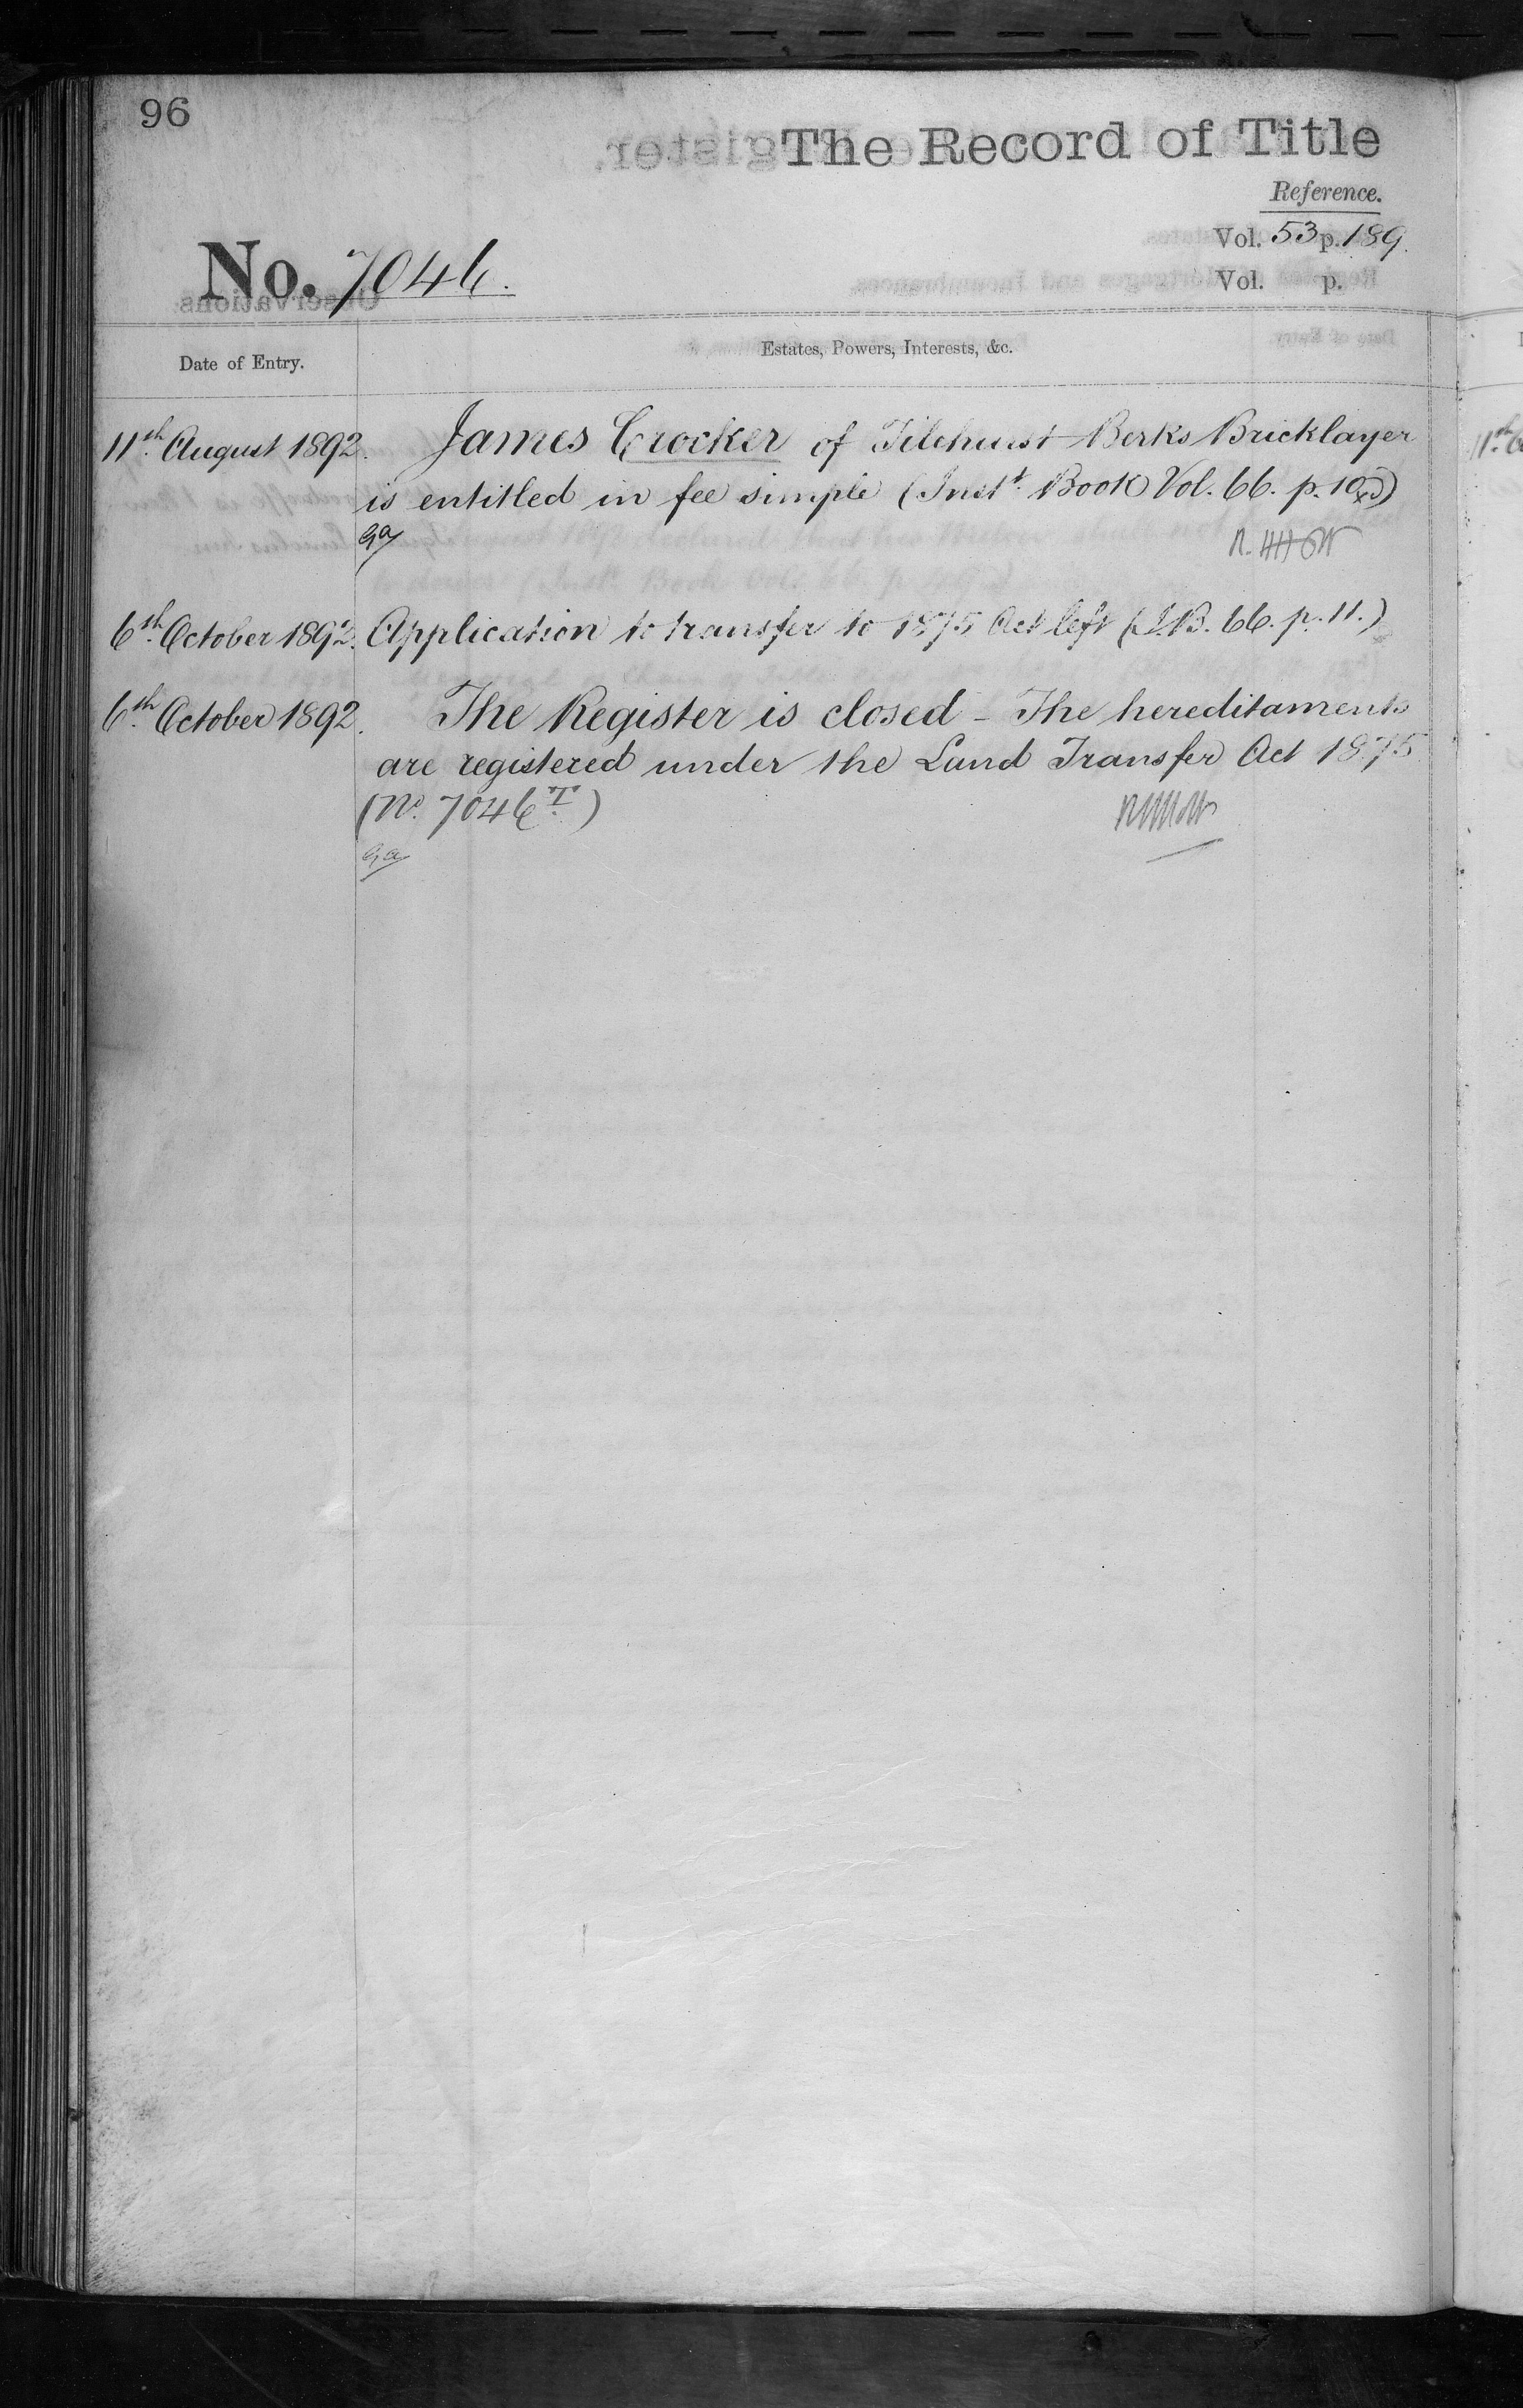 96
The Record of Title
Reference.
Vol. 53 p. 189.
No. 7046.
Vol. p.
Date of Entry.
Estates, Powers, Interests, &c.
11th August 1892. James Crocker of Tilehurst Berks Bricklayer
is entitled in fee simple (Instt. Book Vol. 66. p. 10)
6th October 1892. Application to transfer to 1875 Act left (I.B. 66. p. 11.)
6th October 1892. The Register is closed - The hereditaments
are registered under the Land Transfer Act 1875
(No. 7046T.)